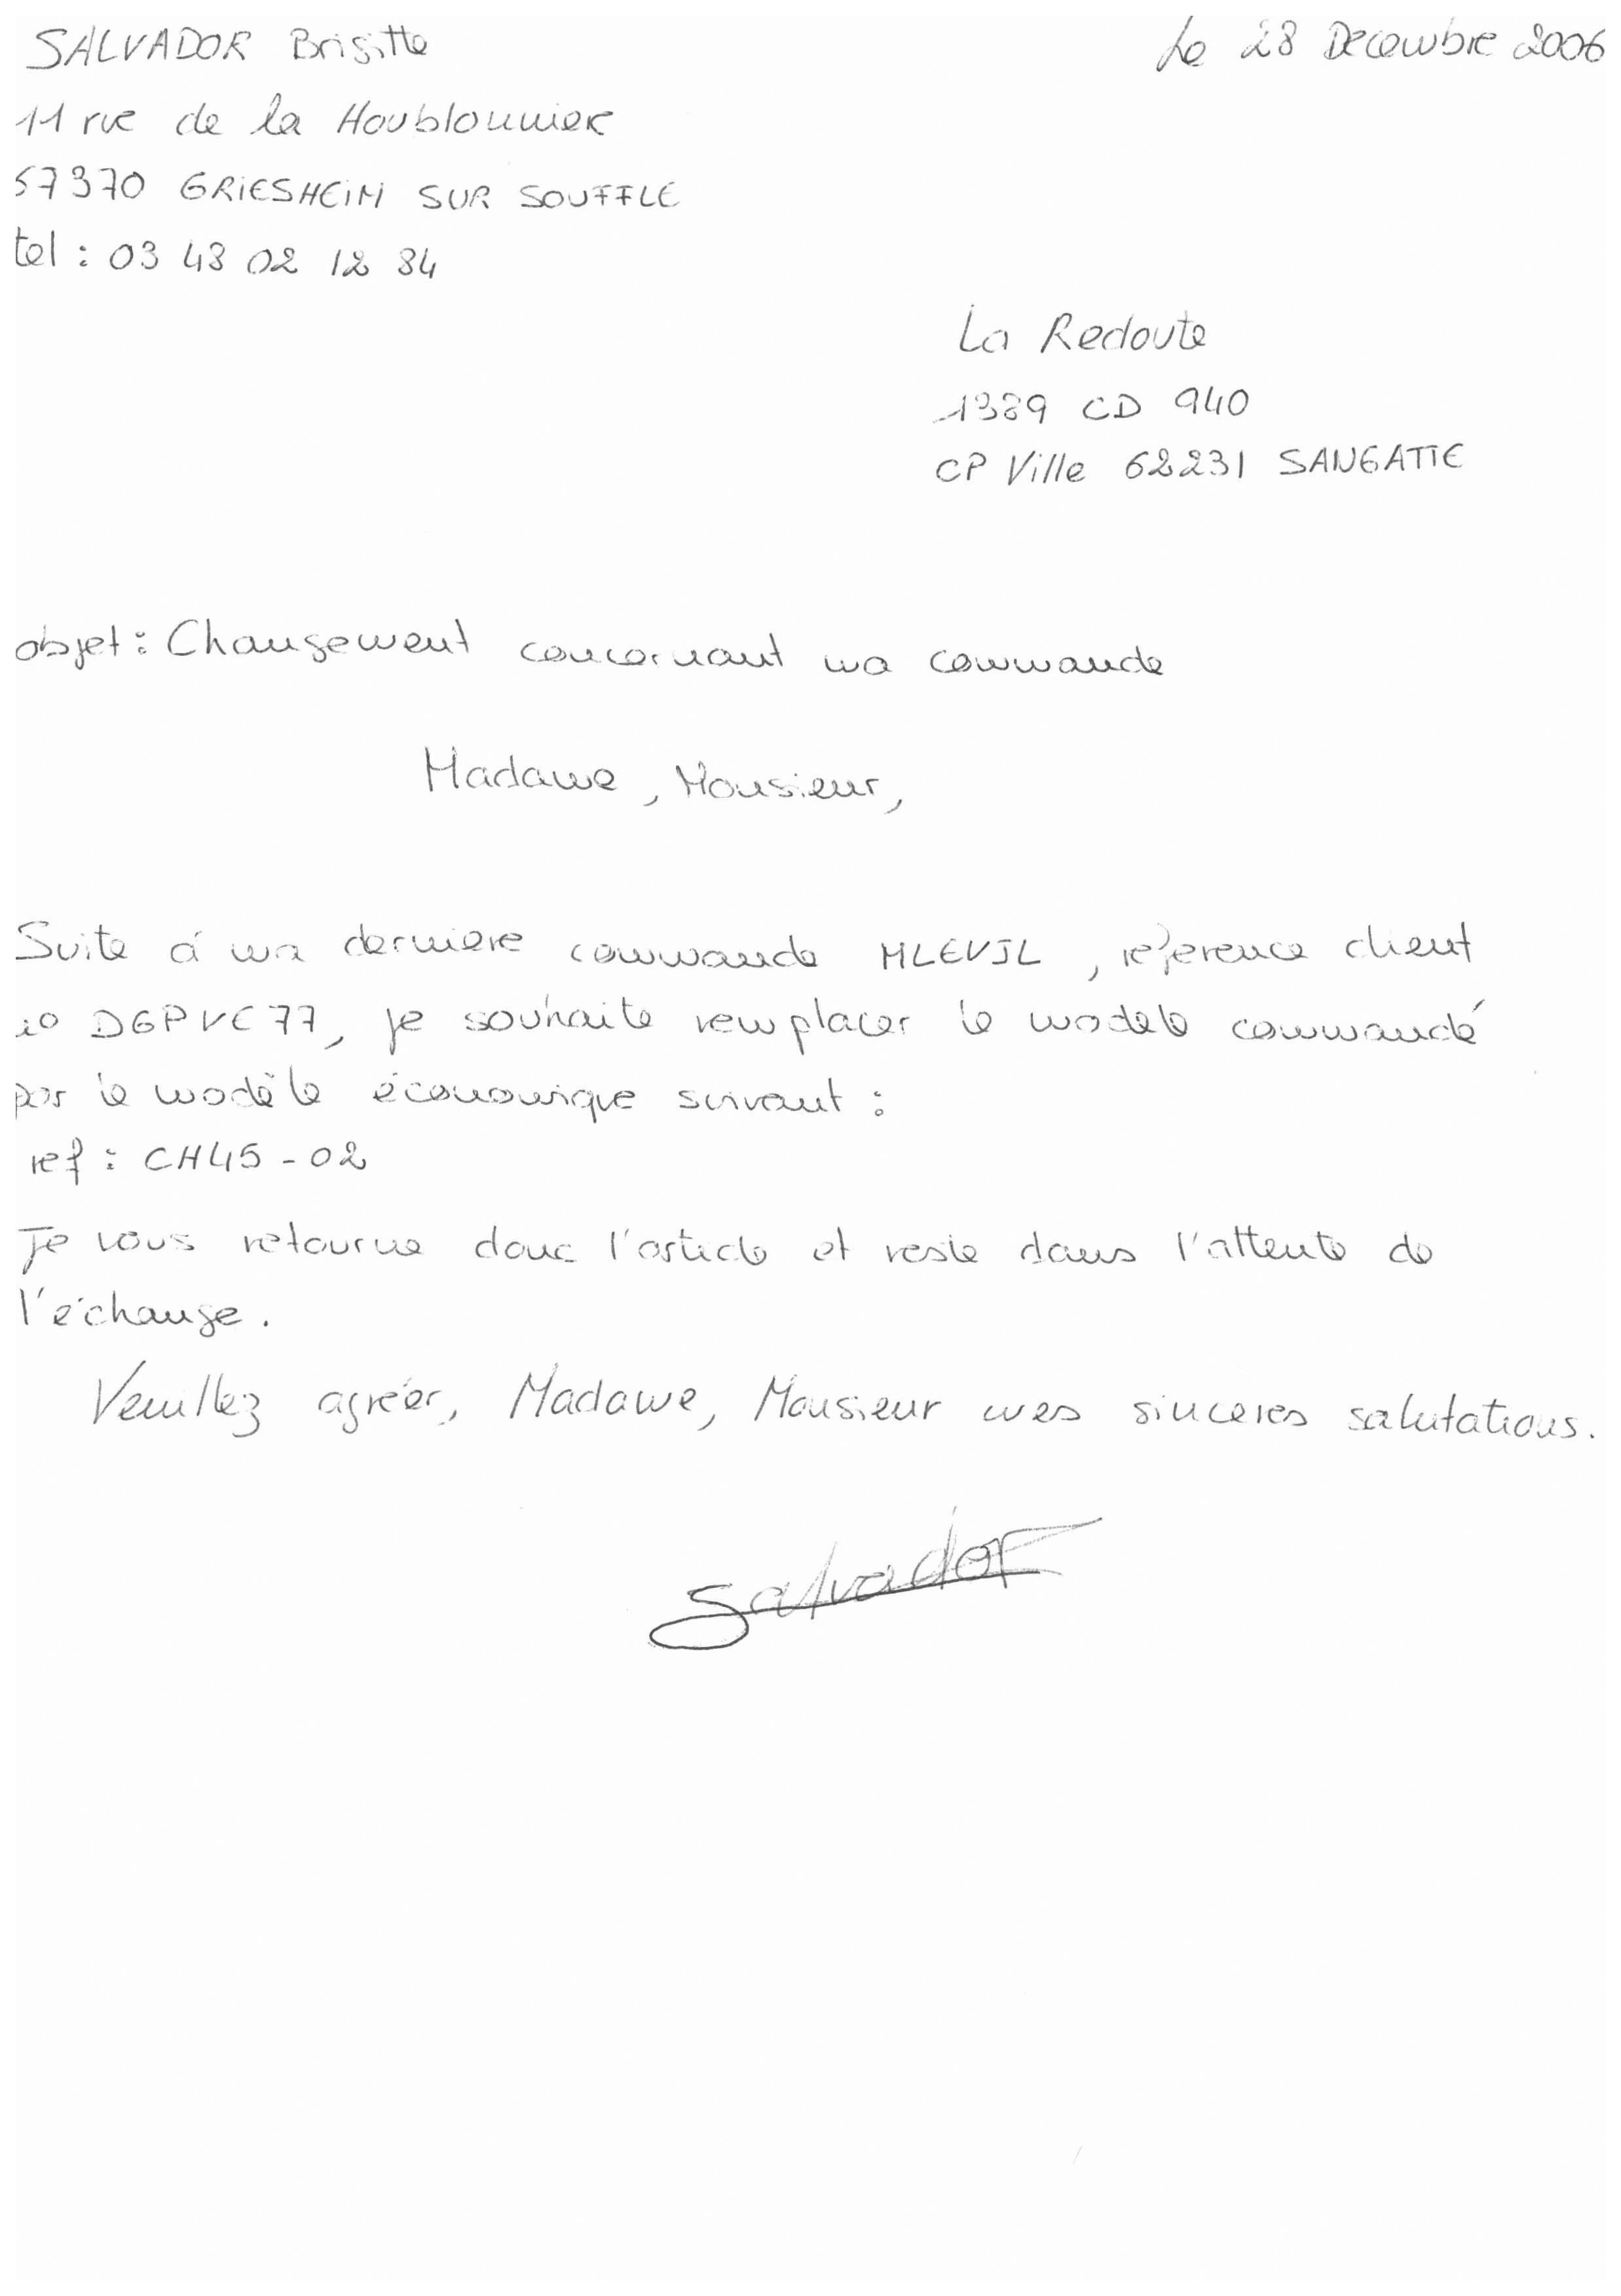 SALVADOR Brigitte
Le 28 Decembre 2006
11 rue de la Houblonnier
57370 GRIESHEIM SUR SOUFFLE
tel : 03 48 02 12 84
La Redoute
1389 CD 940
CP Ville 62231 SANGATTE
objet : Changement concernant ma commande
Madame, Monsieur,
Suite à ma derniere commande MLEVJL, réference client
no DGPVE77, je souhaite remplacer le modele commandé
par le modèle économique suivant :
ref : CH45-02
Je vous retourne donc l'article et reste dans l'attente de
l'échange.
Veuillez agréer, Madame, Monsieur mes sinceres salutations.
Salvador